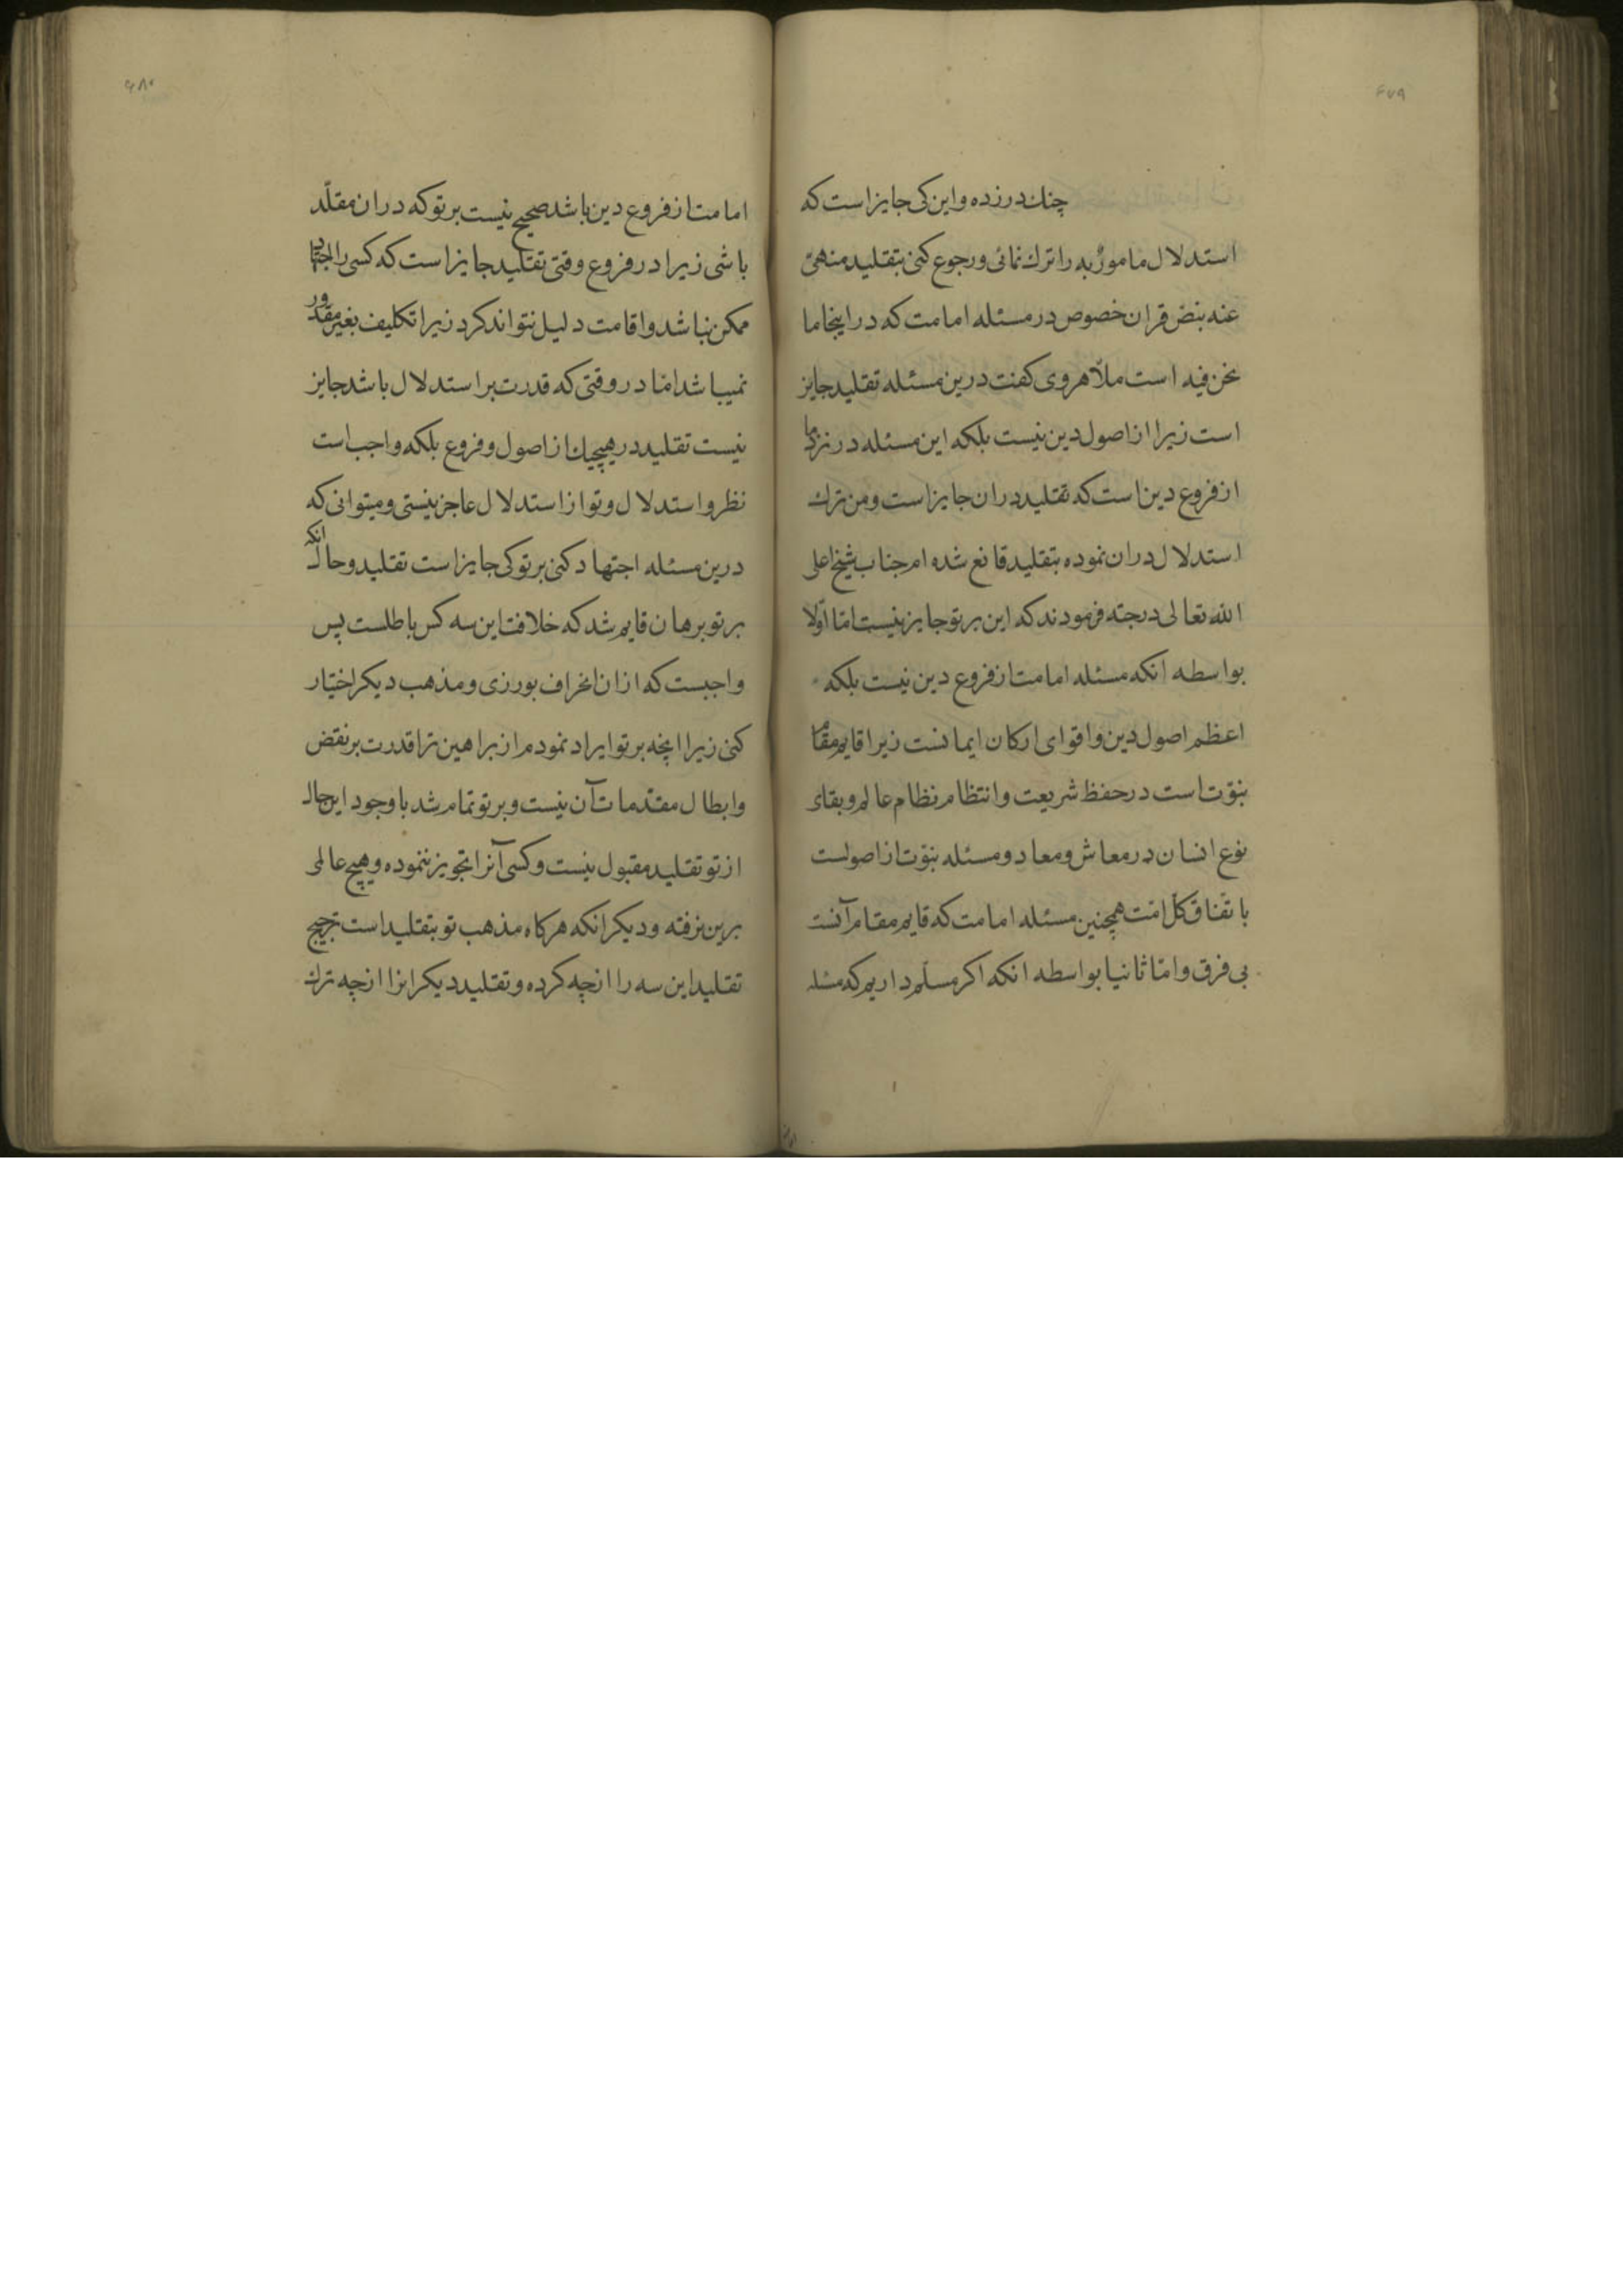 ۴۷۹
چنك درزده و این کی جایز است که
استدلال مامورٌ به را ترك نمائی و رجوع کنی بتقلید منهیّ
عنه بنصّ قران خصوص در مسئله امامت که در اینجا ما
نحن فیه است ملاّ هروی کفت درین مسئله تقلید جایز
است زیرا از اصول دین نیست بلکه این مسئله در نزد ما
از فروع دین است که تقلید در ان جایز است و من ترك
استدلال در ان نموده بتقلید قانع شده ام جناب شیخ اعلی
الله تعالی درجته فرمودند که این بر تو جایز نیست امّا اوّلا
بواسطه انکه مسئله امامت از فروع دین نیست بلکه
اعظم اصول دین و اقوای ارکان ایمانست زیرا قایم مقام
نبوّت است در حفظ شریعت و انتظام نظام عالم و بقای
نوع انسان در معاش و معاد و مسئله نبوّت از اصولست
باتفاق کلّ امّت همچنین مسئله امامت که قایم مقام آنست
بی فرق و امّا ثانیا بواسطه انکه اکر مسلّم داریم که مسئله
۴۸۰
امامت از فروع دین باشد صحیح نیست بر تو که در ان مقلّد
باشی زیرا در فروع وقتی تقلید جایز است که کسی را اجتهاد
ممکن نباشد و اقامت دلیل نتواند کرد زیرا تکلیف بغیر مقدور
نمیباشد امّا در وقتی که قدرت بر استدلال باشد جایز
نیست تقلید در هیچیك از اصول و فروع بلکه واجب است
نظر و استدلال و تو از استدلال عاجز نیستی و میتوانی که
درین مسئله اجتهاد کنی بر تو کی جایز است تقلید و حال انکه
بر تو برهان قایم شد که خلافت این سه کس باطلست پس
واجبست که از ان انحراف بورزی و مذهب دیکر اختیار
کنی زیرا انچه بر تو ایراد نمودم از براهین ترا قدرت بر نقض
و ابطال مقدّمات آن نیست و بر تو تمام شد با وجود این حال
از تو تقلید مقبول نیست و کسی آنرا تجویز ننموده و هیچ عالمی
برین نرفته و دیکر انکه هرکاه مذهب تو بتقلید است ترجیح
تقلید این سه را از چه کرده و تقلید دیکرانرا از چه ترك